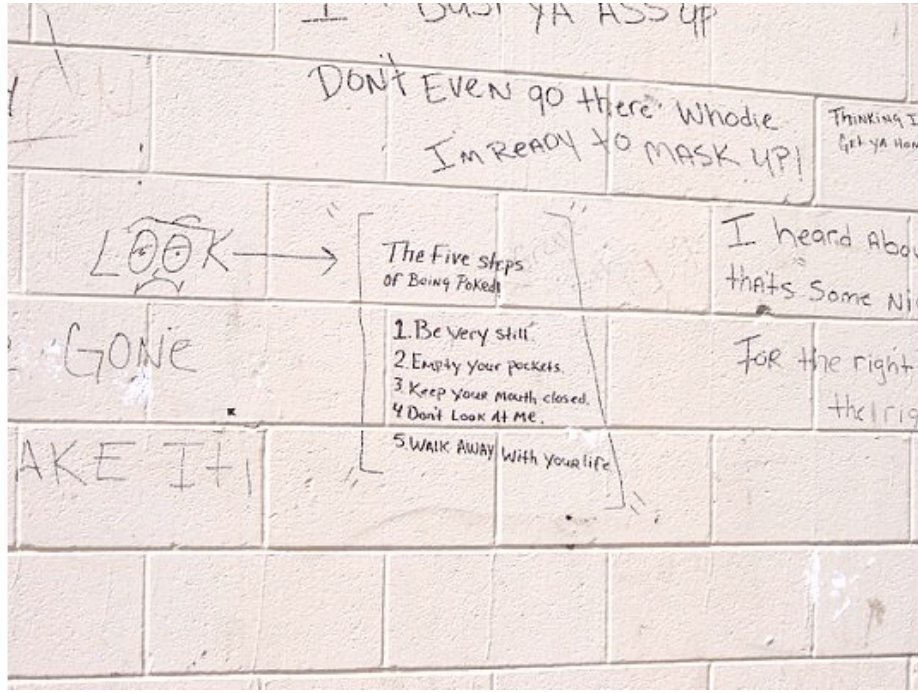 BUST YA ASS UP
DON'T EVEN go there Whodie
I'M READY to MASK UP!
THINKING I
Get YA HOM
LOOK
The Five steps
of Being Poked!
1. Be very still.
2. Empty your pockets.
3. Keep your mouth closed.
4 Don't Look At Me.
5. WALK AWAY With your life
I heard Abou
that's Some Ni
GONE
FOR the right
the rig
AKE IT